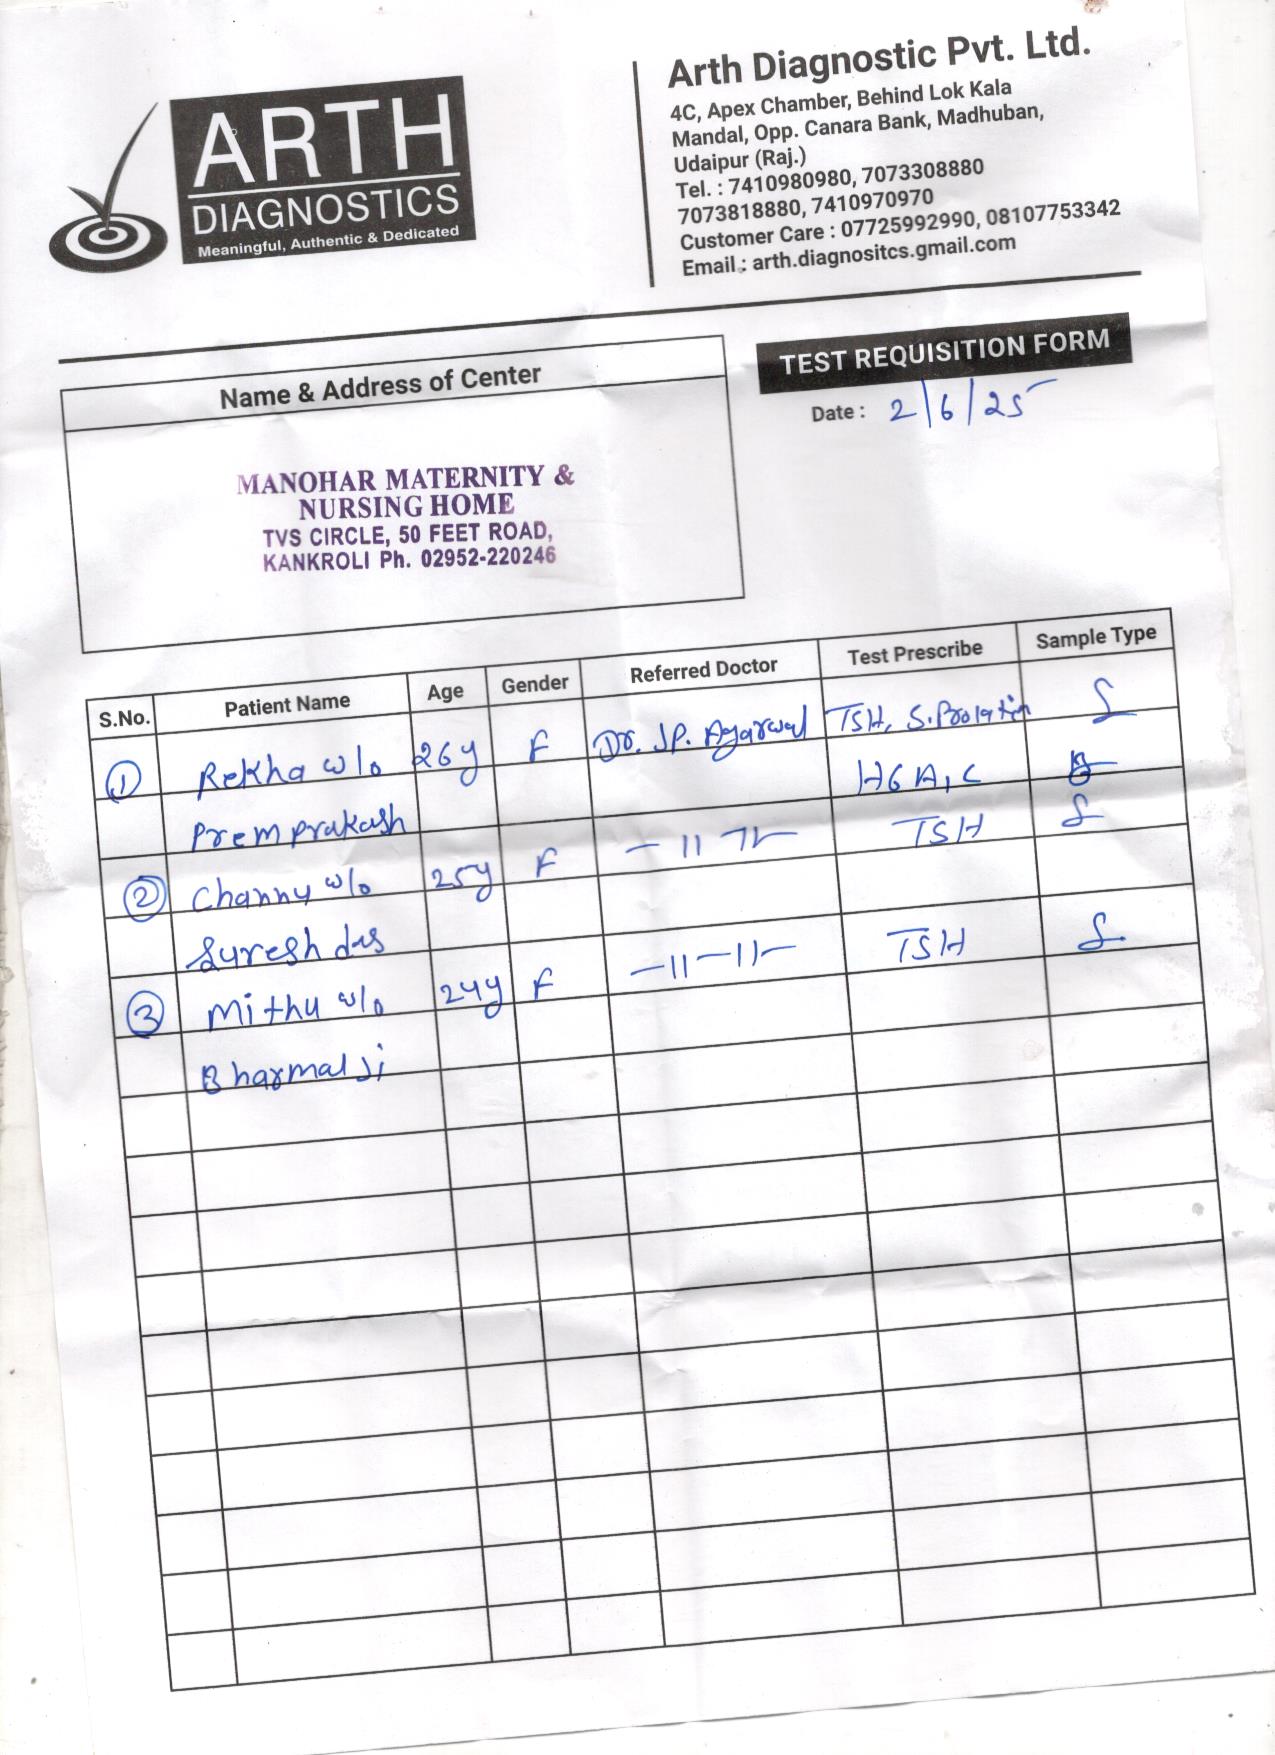 ARTH
DIAGNOSTICS
Meaningful, Authentic & Dedicated
Arth Diagnostic Pvt. Ltd.
4C, Apex Chamber, Behind Lok Kala
Mandal, Opp. Canara Bank, Madhuban,
Udaipur (Raj.)
Tel. : 7410980980, 7073308880
7073818880, 7410970970
Customer Care : 07725992990, 08107753342
Email : arth.diagnositcs.gmail.com
TEST REQUISITION FORM
Date : 2/6/25
Name & Address of Center
MANOHAR MATERNITY &
NURSING HOME
TVS CIRCLE, 50 FEET ROAD,
KANKROLI Ph. 02952-220246
S.No. Patient Name Age Gender Referred Doctor Test Prescribe Sample Type
1 Rekha w/o 26y F Dr. J.P. Agarwal TSH, S.Prolaktin S
HbA1C
Prem prakash
2 Channy w/o 25y F —11—11— TSH S
Suresh das
3 Mithu w/o 24y F —11—11— TSH S
Bharmal ji